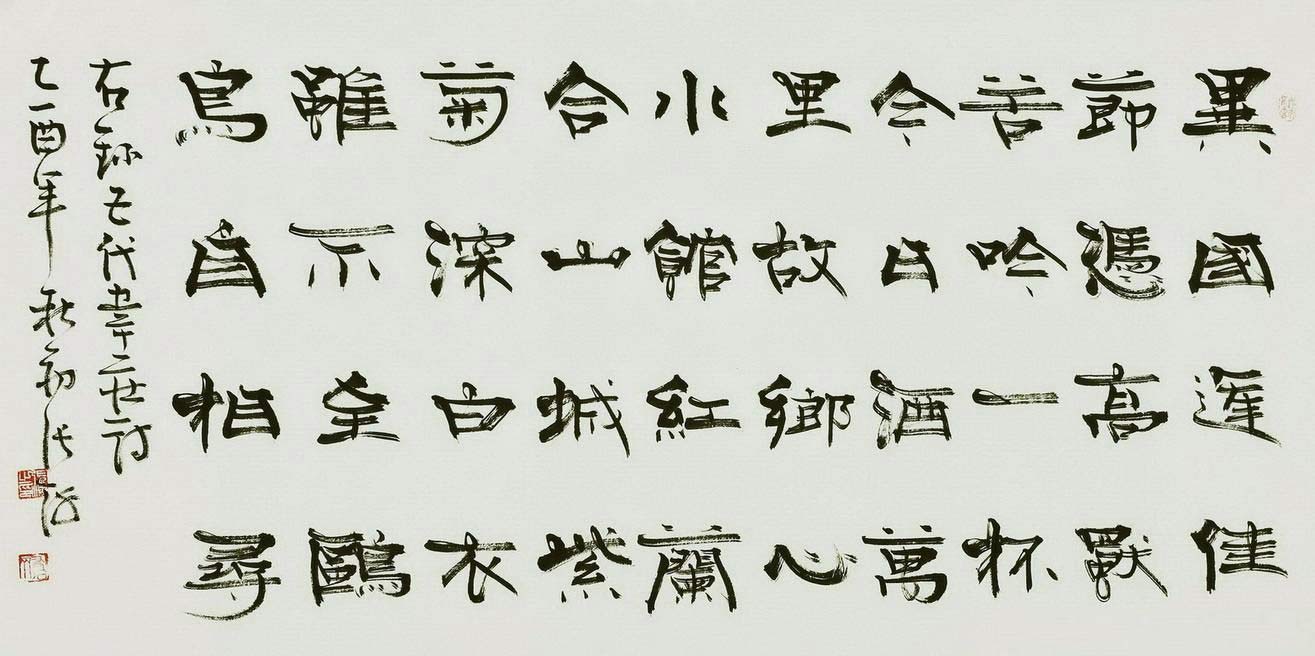 異國逢佳
節憑高獨
苦吟一杯
今日酒萬
里故鄉心
水館紅蘭
合山城紫
菊深白衣
雖不至鷗
鳥自相尋
右錄五代韋莊詩
乙酉年秋初張海